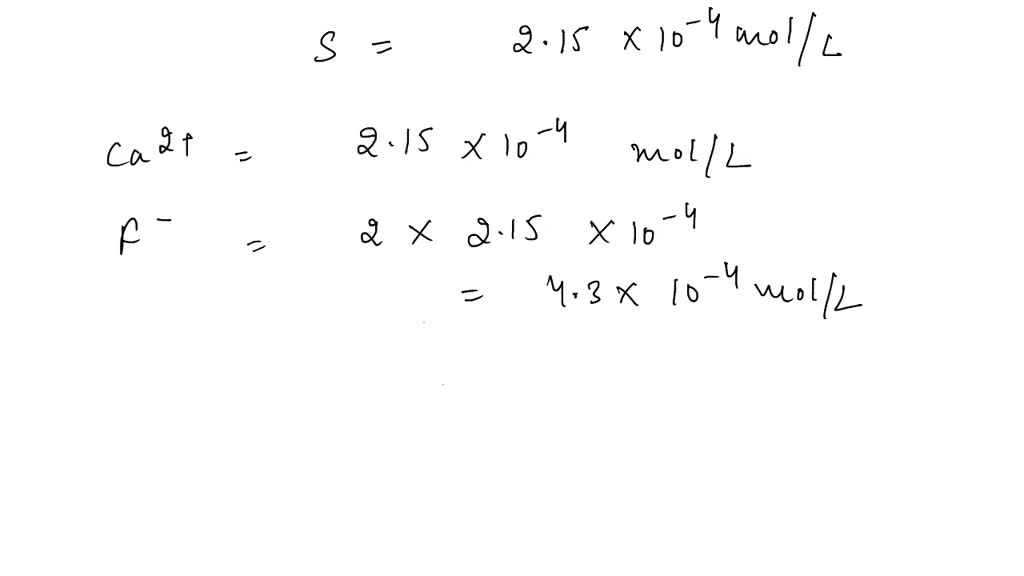 S = 2.15 × 10⁻⁴ mol/L
Ca²⁺ = 2.15 × 10⁻⁴ mol/L
F⁻ = 2 × 2.15 × 10⁻⁴
= 4.3 × 10⁻⁴ mol/L